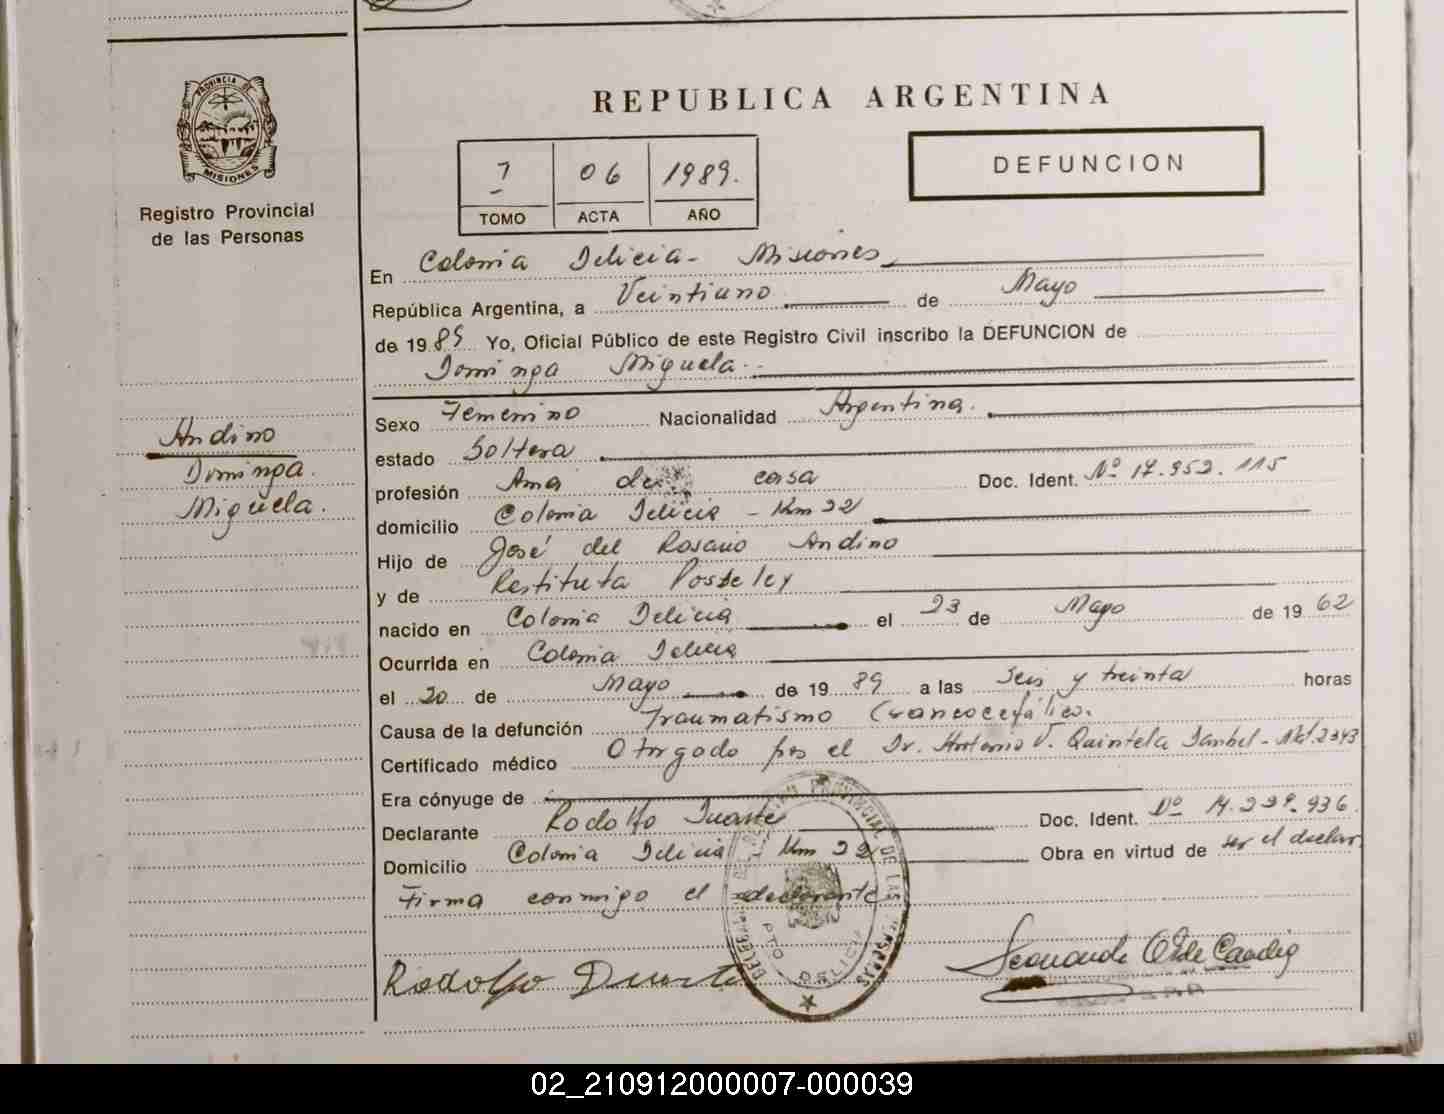 PROVINCIA DE
MISIONES
Registro Provincial
de las Personas
REPUBLICA ARGENTINA
DEFUNCION
7 06 1989.
TOMO ACTA AÑO
En Colonia Delicia - Misiones
República Argentina, a Veintiuno de Mayo
de 1989 Yo, Oficial Público de este Registro Civil inscribo la DEFUNCION de
Dominga Miguela.
Andino
Dominga
Miguela.
Sexo Femenino Nacionalidad Argentina.
estado Soltera
profesión Ama de casa Doc. Ident. Nº 17.952.115
domicilio Colonia Delicia - Km 22
Hijo de José del Rosario Andino
y de Restituta Posdeley
nacido en Colonia Delicia el 23 de Mayo de 1962
Ocurrida en Colonia Delicia
el 20 de Mayo de 1989 a las Seis y treinta horas
Causa de la defunción Traumatismo Craneocefálico.
Certificado médico Otorgado por el Dr. Antonio V. Quintela - Mat. 2343
Era cónyuge de
Declarante Rodolfo Duarte Doc. Ident. Dº 14.239.936
Domicilio Colonia Delicia - Km 22 Obra en virtud de ser el declar
Firma conmigo el declarante
PROVINCIAL DE LAS PERSONAS
PTO DELICIA
Rodolfo Duarte
02_210912000007-000039